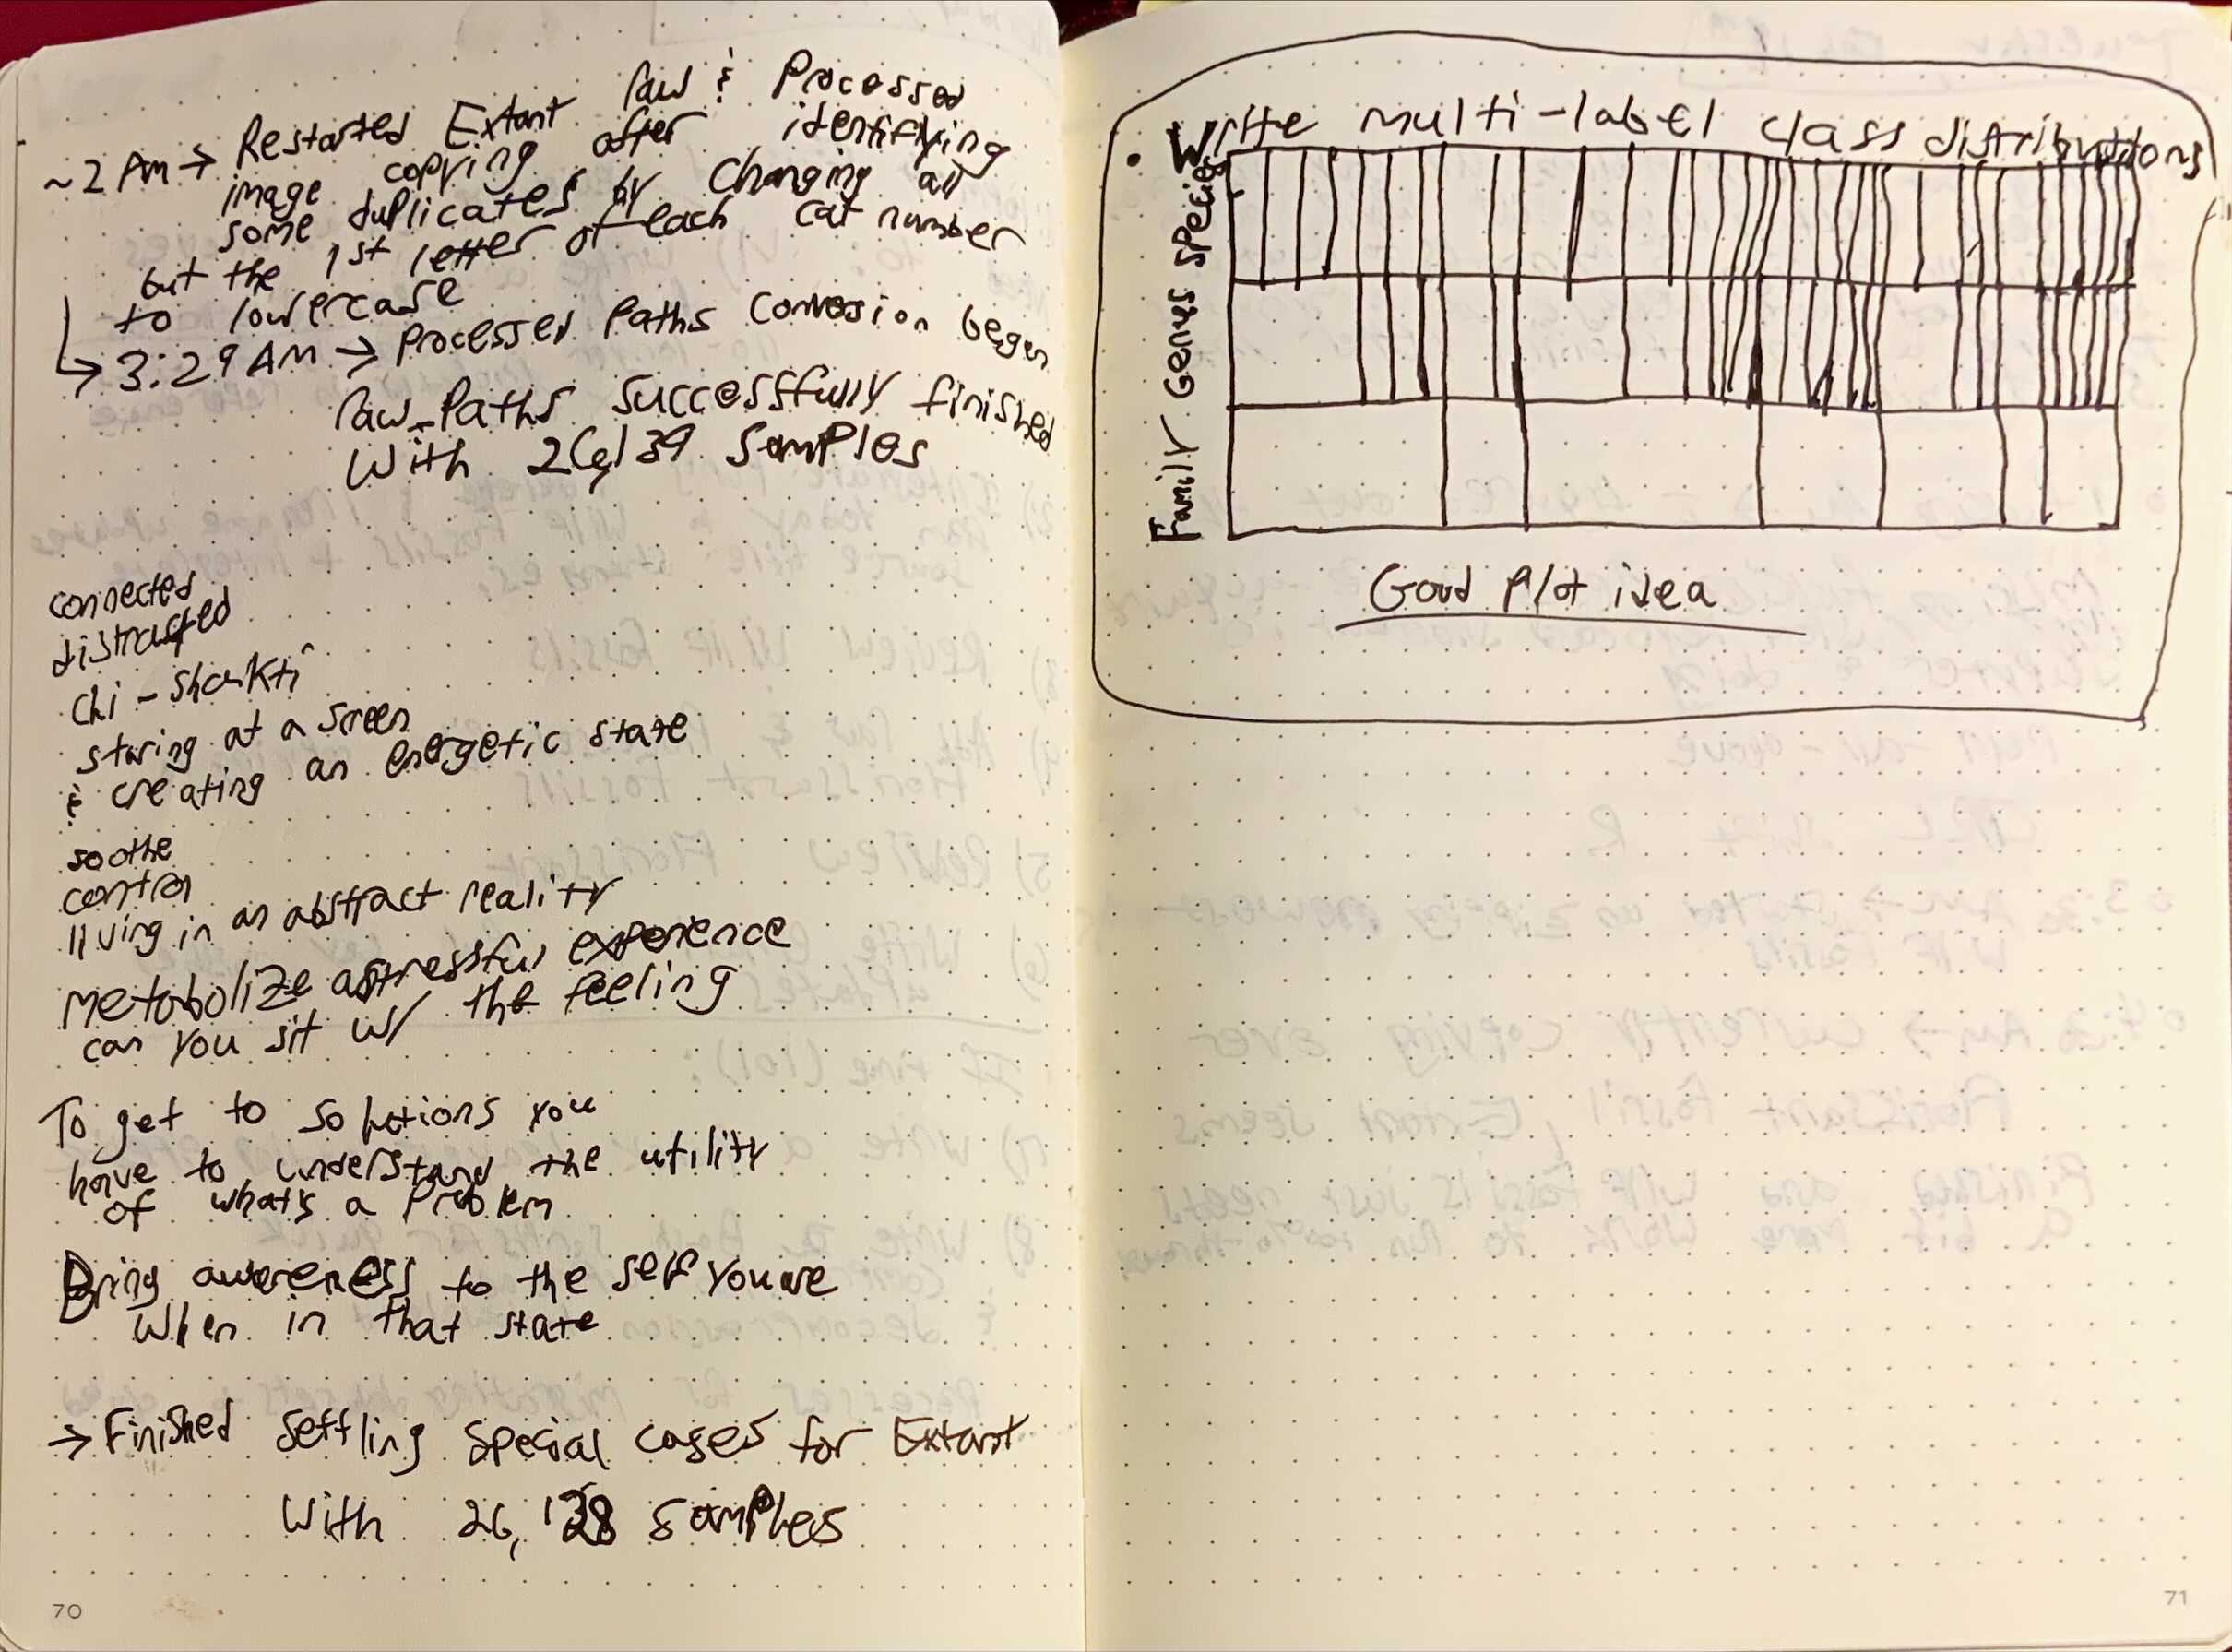 ~2 AM → Restarted Extant raw & Processed
image copying after identifying
some duplicates by changing all
but the 1st letter of each cat number
to lowercase
↳ 3:29 AM → Processed Paths Conversion began
raw_Paths successfully finished
With 26,139 samples
connected
distracted
Chi - Shakti
staring at a screen
& creating an energetic state
soothe
control
living in an abstract reality
Metabolize a stressful experience
can you sit w/ the feeling
To get to solutions you
have to understand the utility
of what's a problem
Bring awareness to the self you are
When in that state
→ Finished Settling Special cases for Extant
With 26,138 samples
70
• Write multi-label class distributions
Species
Genus
Family
Good Plot idea
71